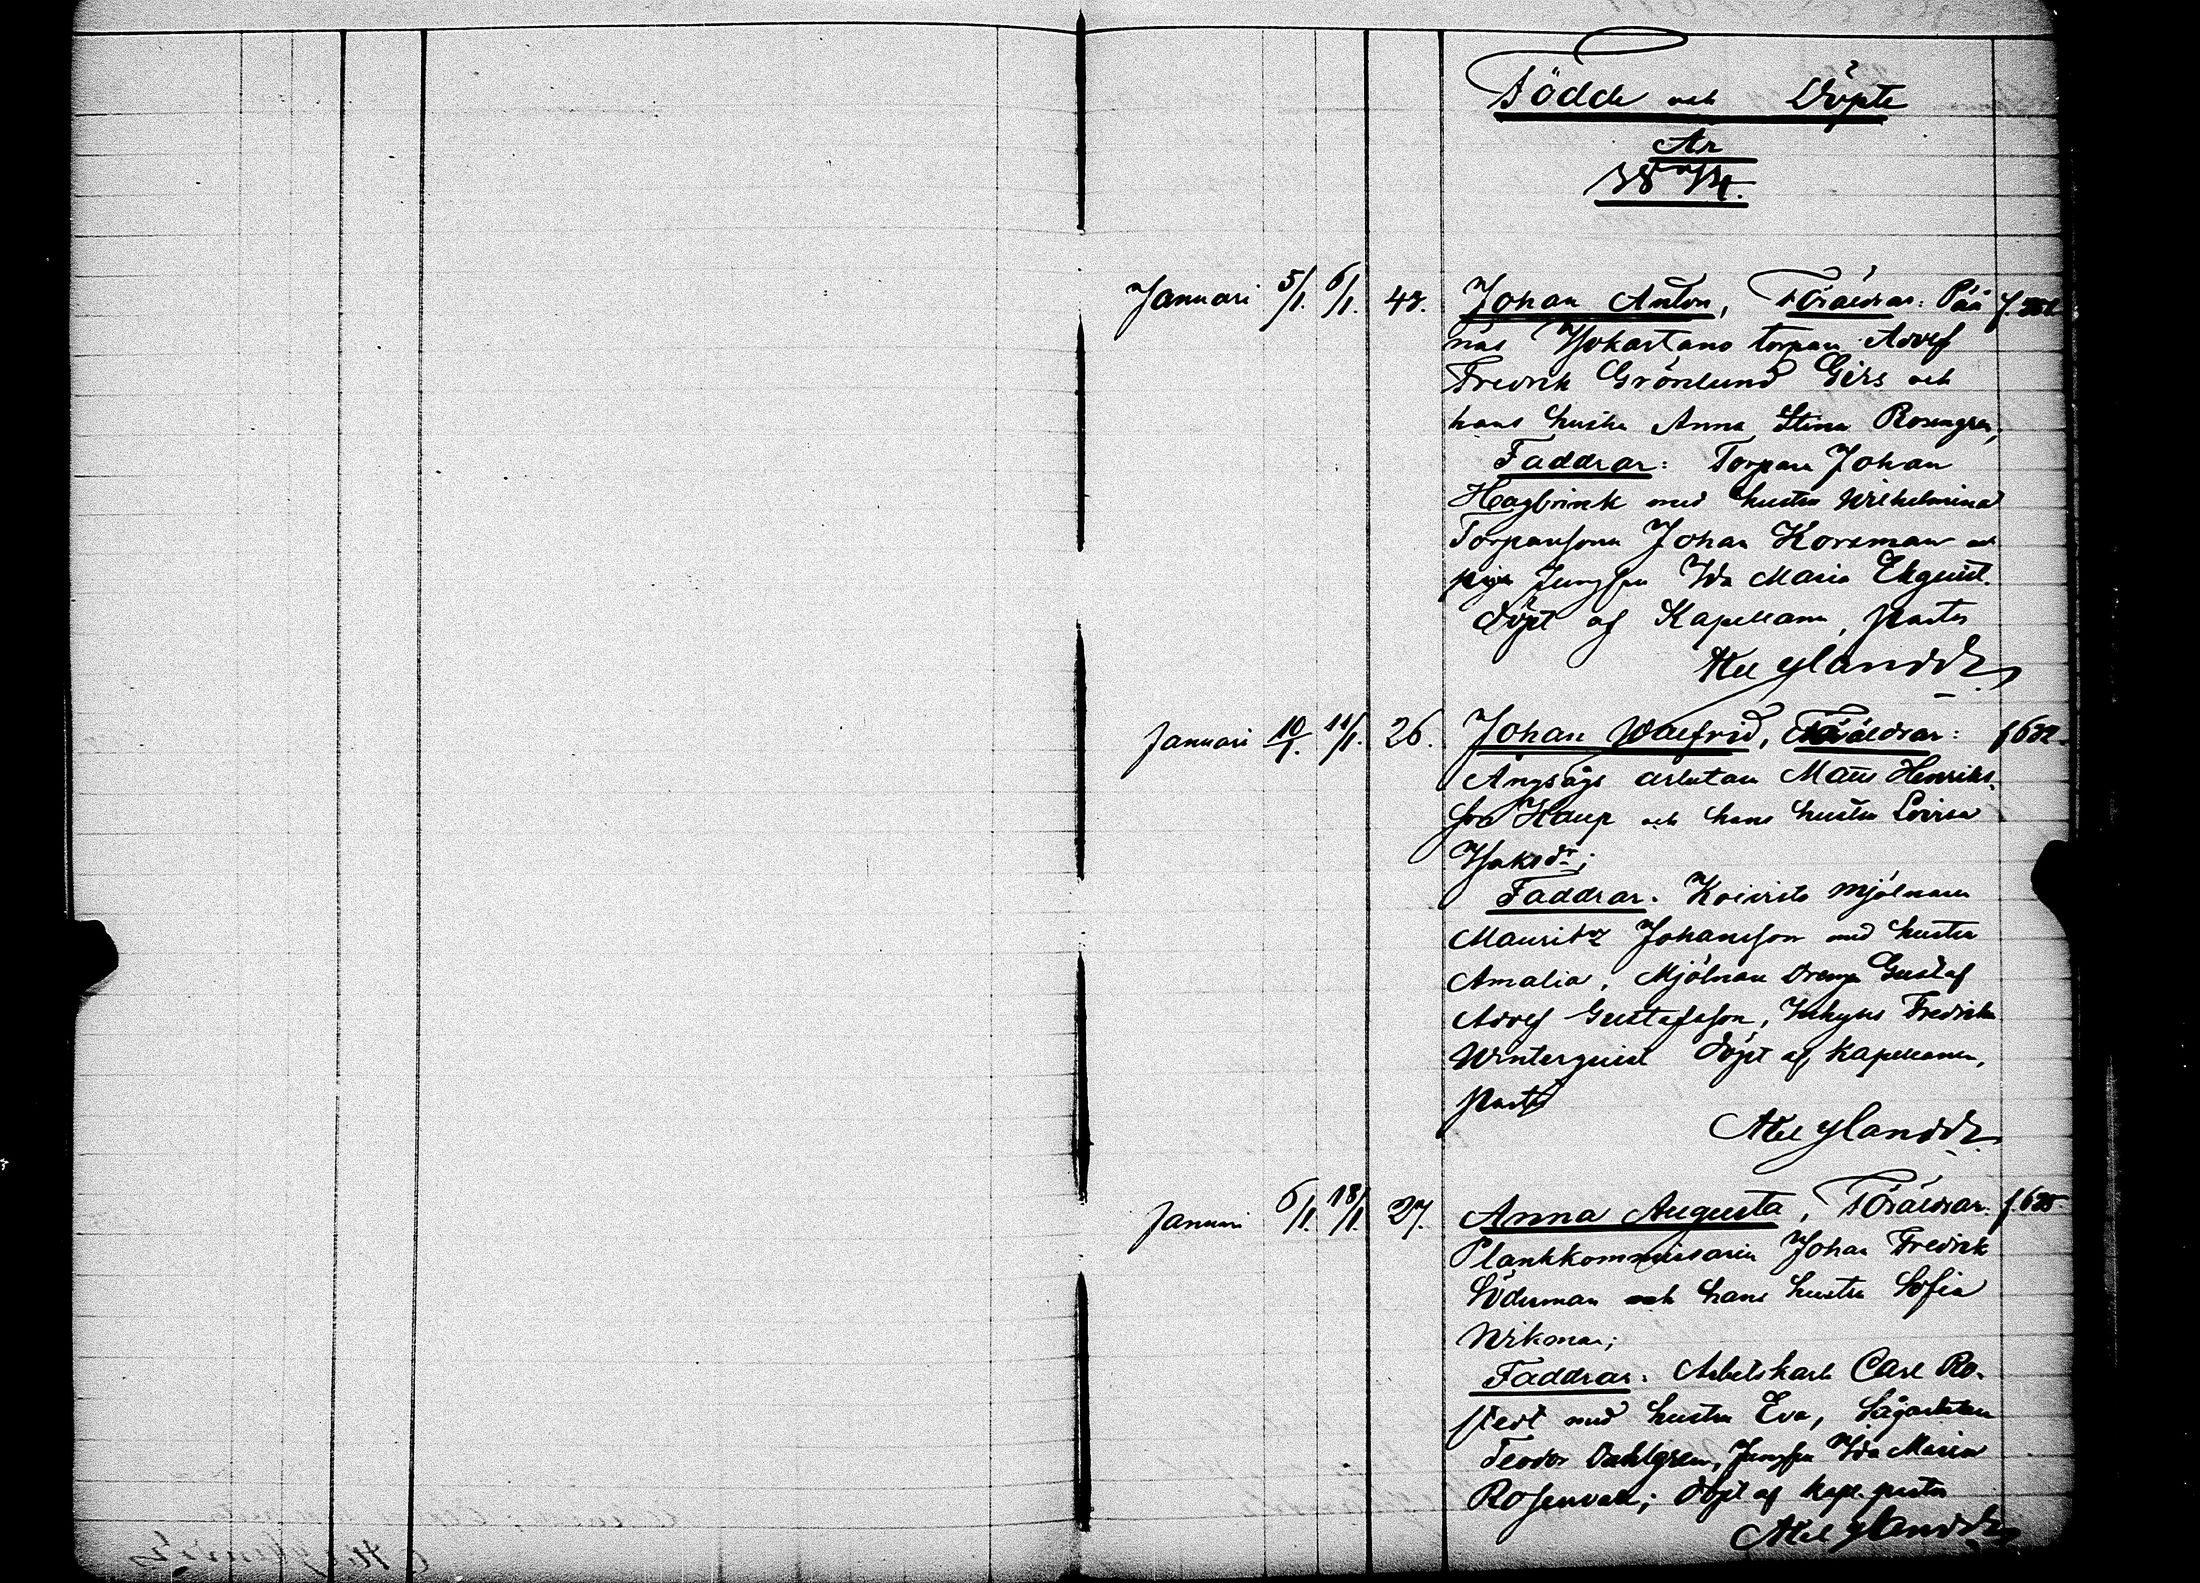 Födde och Döpte
År
1874.
Januari 5/1. 6/1. 43. Johan Anton, Föräldrar: Pää
näs Isokartano torpare Adolf
Fredrik Grönlund Girs och
hans hustru Anna Stina Rosengren,
Faddrar: Torpare Johan
Hagbrink med hustru Wilhelmina
Torparesonen Johan Korsman och
pigan Jungfru Ida Maria Ekquist.
döpt af Kapellanen, Pastor
Ylander
Januari 10/1. 11/1. 26. Johan Walfrid, Föräldrar: f 632.
Ångsågs arbetaren Matts Henriks-
son Haup och hans hustru Lovisa
Isaksdr;
Faddrar. Koivisto Mjölnaren
Mauritz Johansson med hustru
Amalia, Mjölnare Dreng Gustaf
Adolf Gustafsson, Inhyses Fredrika
Winterquist döpt af Kapellanen,
Pastor
Axel Ylander
Januari 6/1. 18/1. 27. Anna Augusta, Föräldrar. f. 635.
Plankkommissarien Johan Fredrik
Söderman och hans hustru Sofia
Wikman;
Faddrar. Arbetskarl Carl Ro-
stedt med hustru Eva, Sågarbetaren
Teodor Dahlgren, Jungfru Ida Maria
Rosenvall; döpt af Kapl. pastor
Axel Ylander